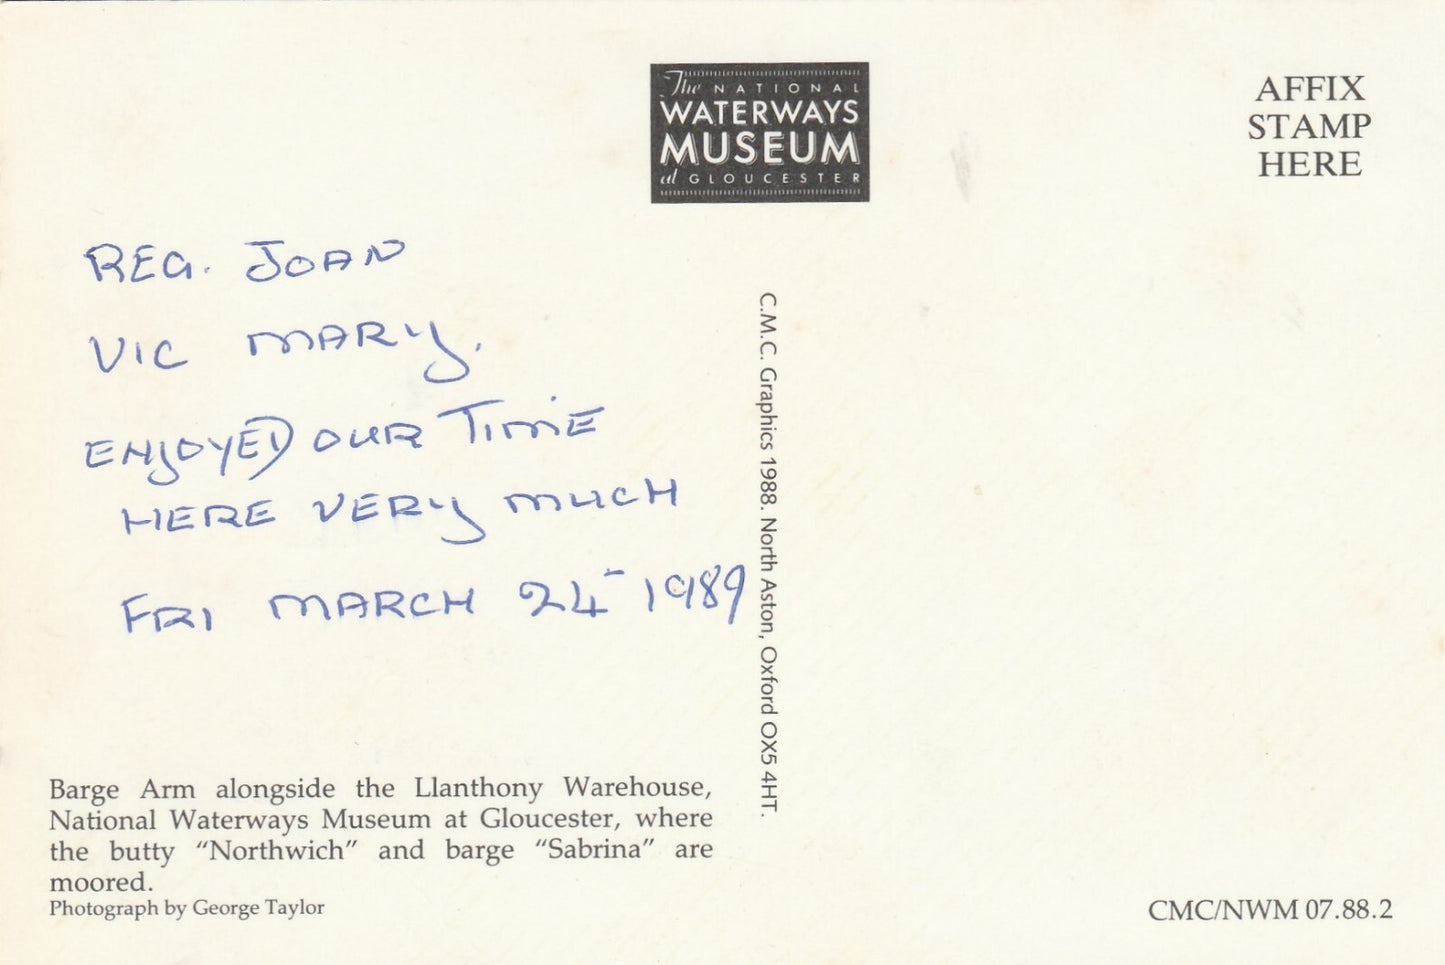 The NATIONAL
WATERWAYS
MUSEUM
at GLOUCESTER
AFFIX
STAMP
HERE
REG. JOAN
VIC MARY.
ENJOYED OUR TIME
HERE VERY MUCH
FRI MARCH 24 1989
C.M.C. Graphics 1988. North Aston, Oxford OX5 4HT.
Barge Arm alongside the Llanthony Warehouse,
National Waterways Museum at Gloucester, where
the butty “Northwich” and barge “Sabrina” are
moored.
Photograph by George Taylor
CMC/NWM 07.88.2